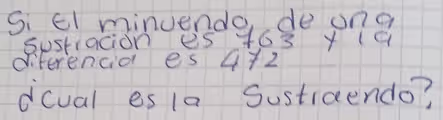 Si El minuendo, de una
sustración es 763 y la
diferencia es 472
¿cual es la Sustraendo?